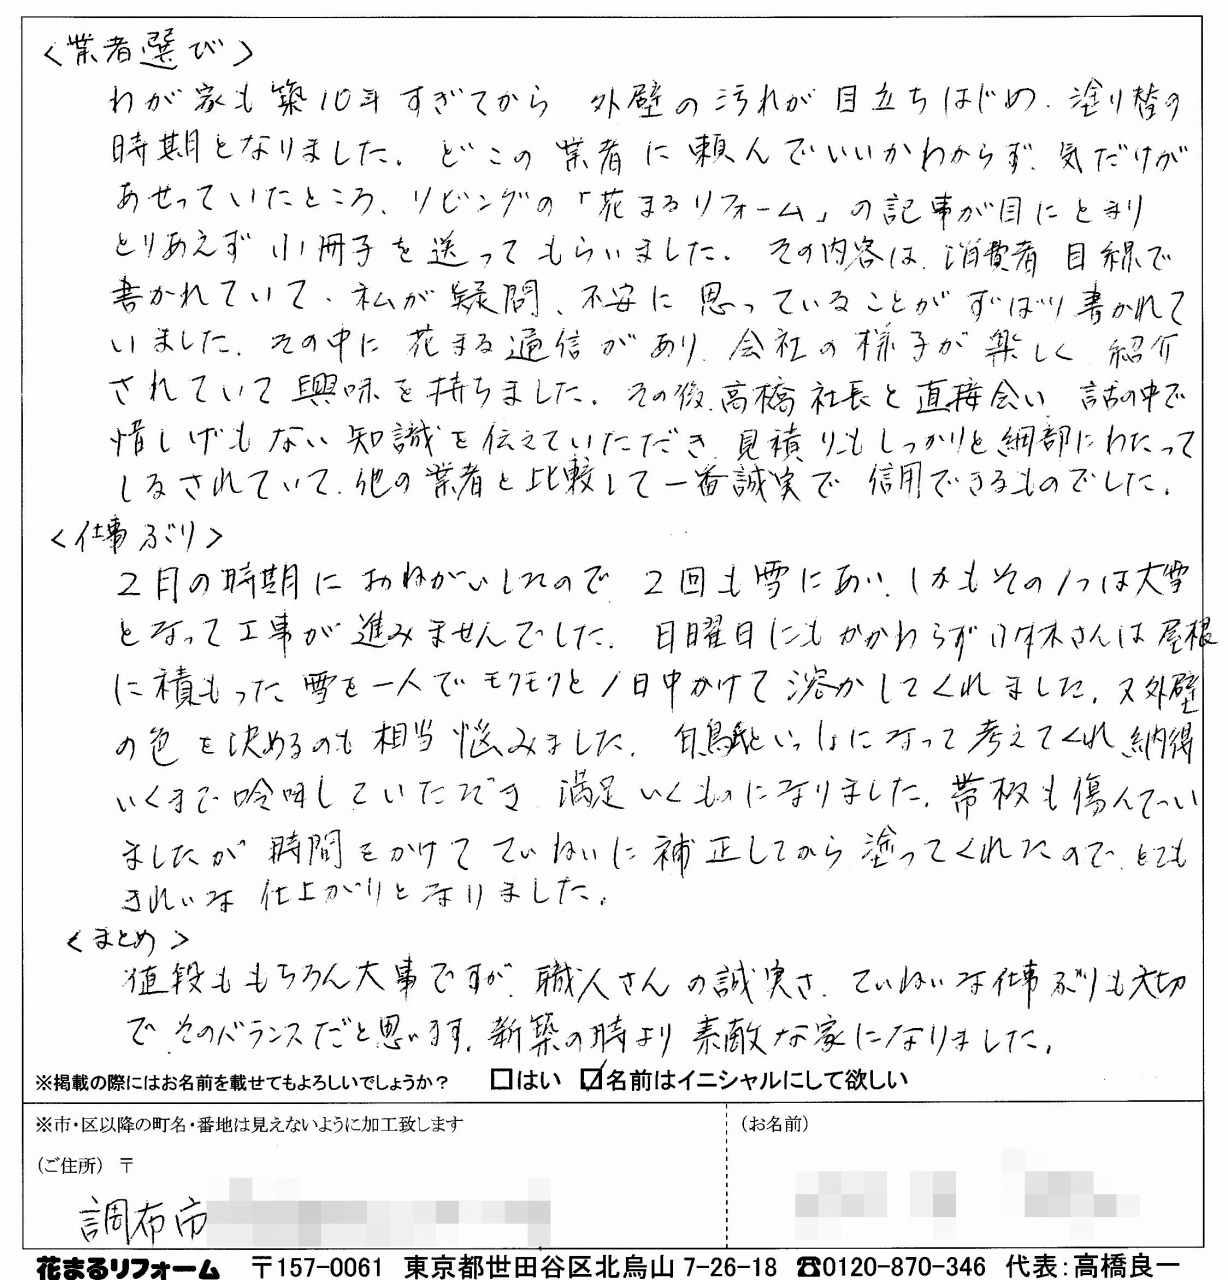 <業者選び>
わが家も築10年すぎてから 外壁の汚れが目立ちはじめ、塗り替の
時期となりました。どこの業者に頼んでいいかわからず、気だけが
あせっていたところ、リビングの「花まるリフォーム」の記事が目にとまり
とりあえず小冊子を送ってもらいました。その内容は、消費者目線で
書かれていて、私が疑問、不安に思っていることがずばり書かれて
いました。その中に花まる通信があり、会社の様子が楽しく紹介
されていて興味を持ちました。その後、高橋社長と直接会い、話の中で
惜しげもない知識を伝えていただき、見積りもしっかりと細部にわたって
しるされていて、他の業者と比較して一番誠実で信用できるものでした。
<仕事ぶり>
2月の時期におねがいしたので、2回も雪にあい、しかもその1つは大雪
となって工事が進みませんでした。日曜日にもかかわらず さんは屋根
に積もった雪を一人でモクモクと1日中かけて溶かしてくれました。又外壁
の色を決めるのも相当悩みました。白鳥氏といっしょになって考えてくれ納得
いくまで吟味していただき、満足いくものになりました。帯板も傷んでい
ましたが時間をかけてていねいに補正してから塗ってくれたので、とても
きれいな仕上がりとなりました。
<まとめ>
値段ももちろん大事ですが、職人さんの誠実さ、ていねいな仕事ぶりも大切
で、そのバランスだと思います。新築の時より素敵な家になりました。
※掲載の際にはお名前を載せてもよろしいでしょうか? □はい ☑名前はイニシャルにして欲しい
※市・区以降の町名・番地は見えないように加工致します (お名前)
(ご住所) 〒
調布市
花まるリフォーム 〒157-0061 東京都世田谷区北烏山7-26-18 ☎0120-870-346 代表:高橋良一